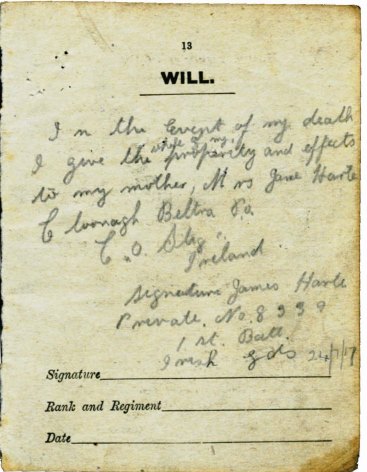 13
WILL.
In the Event of my death
I give the whole of my property and effects
to my mother, Mrs Jane Harte
Cloonagh Beltra P.o.
C.O. Sligo
Ireland
Signature James Harte
Private. No. 8939
1 st. Batt
Irish Gds 24/7/17
Signature
Rank and Regiment
Date